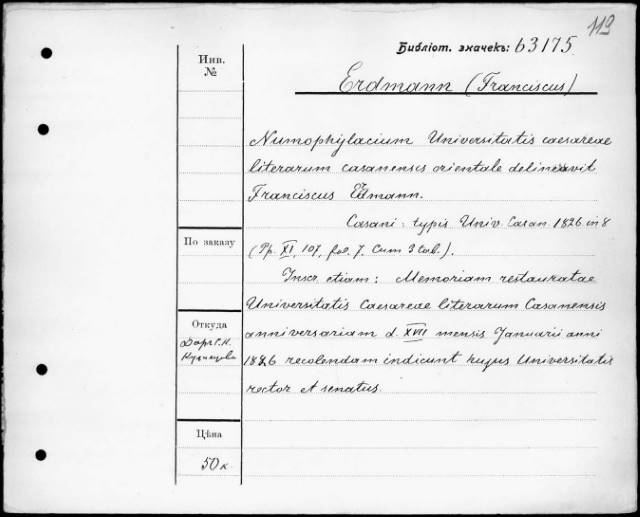 112
Библіот. значекъ: b3175
Инв. №
Erdmann (Franciscus)
Numophylacium Universitatis caesareae
literarum casanensis orientale delineavit
Franciscus Edmann.
Casani: typis Univ. Casan. 1826 in 8
(Pp. XI, 107, fol. 7. Cum 3 tab.).
По заказу
Inscr. etiam: Memoriam restauratae
Universitatis Caesareae literarum Casanensis
anniversariam d. XVII mensis Januarii anni
1826 recolendam indicunt hujus Universitatis
rector et senatus.
Откуда
Даръ
Кузнецова
Цѣна
50 к